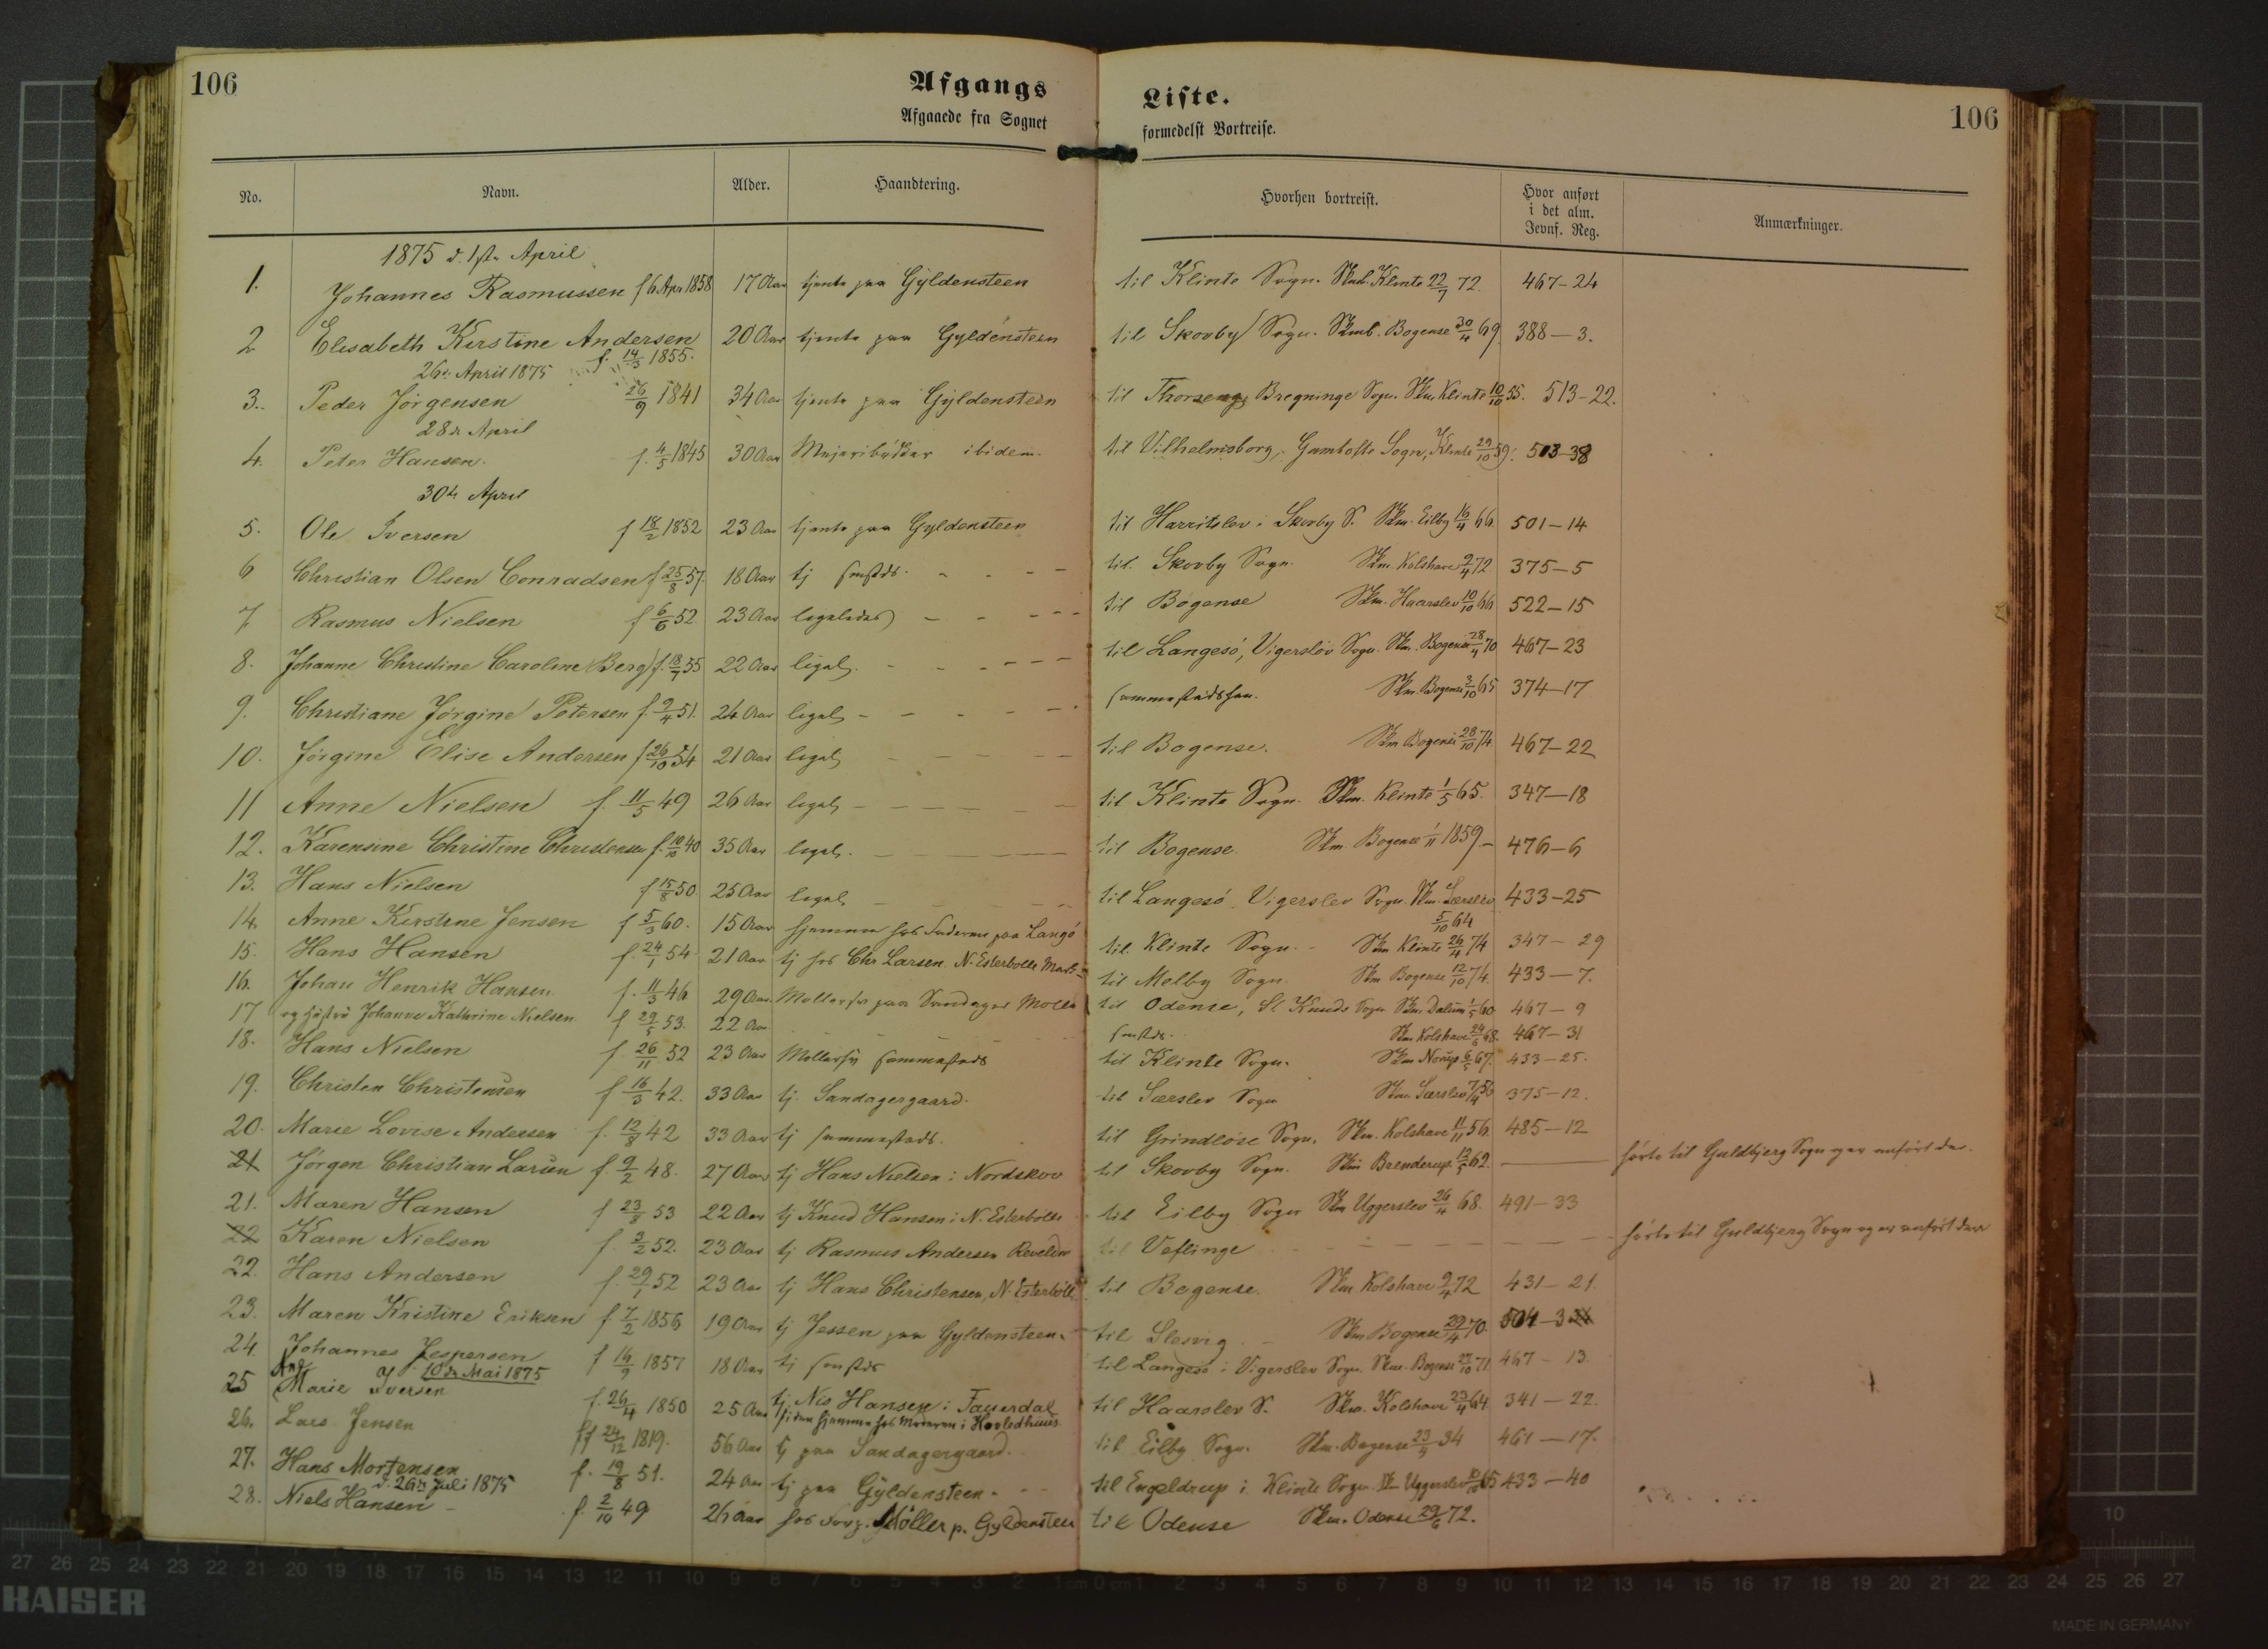 106
Afgangs
Afgaaede fra Sognet
Liste.
formedelst Bortreise.
106
No.
Navn.
Alder.
Haandtering.
Hvorhen bortreist.
Hvor anført
i det alm.
Jevnf. Reg.
Anmærkninger.
1875 d. 1ste April
1. Johannes Rasmussen f 6 Apr 1858 17 Aar tjente paa Gyldensteen til Klinte Sogn. Skmb. Klinte 22/7 72. 467-24
2 Elisabeth Kirstine Andersen 20 Aar tjente paa Gyldensteen til Skovby Sogn. Skmb. Bogense 30/4 69 388-3.
f. 14/3 1855.
26de April 1875
3. Peder Jörgensen 26/9 1841 34 Aar tjente paa Gyldensteen til Thorseng, Bregninge Sogn. Skm. Klinte 10/10 55. 513-22.
28de April
4. Peter Hansen. f. 4/5 1845 30 Aar ibidem. til Vilhelmsborg, Gamtofte Sogn, Klinte 29/10 59. 503-38
30te April
5. Ole Iversen f 18/2 1852 23 Aar tjente paa Gyldensteen til Harritslev i Skovby S. Skm. Eilby 16/4 66 501-14
6 Christian Olsen Conradsen f 25/8 57. 18 Aar tj smstds. til Skovby Sogn. Skm. Kolshave 9/4 72 375-5
7. Rasmus Nielsen f 6/6 52 23 Aar ligeledes til Bogense Skm. Haarslev 10/10 66 522-15
8. Johanne Christine Caroline Berg f. 18/7 55 22 Aar ligel. til Langesö, Vigerslöv Sogn. Skm. Bogense 28/4 70 467-23
9. Christiane Jörgine Petersen f. 9/4 51. 24 Aar ligel. sammestedshen. Skm. Bogense 3/10 65 374-17
10. Jörgine Elise Andersen f 26/10 54 21 Aar ligel. til Bogense. Skm Bogense 28/10 74 467-22
11 Anne Nielsen f. 11/5 49 26 Aar ligel. til Klinte Sogn. Skm. Klinte 1/5 65. 347-18
12. Karensine Christine Christensen f. 10/10 40 35 Aar ligel. til Bogense Skm. Bogense 1/11 1859. 476-6
13. Hans Nielsen f 15/8 50 25 Aar ligel. til Langesö Vigerslev Sogn. Skm. Særslev 433-25
5/10 64
14. Anne Kirstine Jensen f 5/3 60. 15 Aar hjemme hos Faderen paa Langö til Klinte Sogn. Skm Klinte 26/4 74 347-29
15. Hans Hansen f. 24/1 54 21 Aar tj hos Chr Larsen N. Esterbölle Mark til Melby Sogn. Skm Bogense 12/10 74. 433-7.
16. Johan Henrik Hansen f. 11/3 46 29 Aar. paa Sandager Mölle til Odense, St Knuds Sogn Skm. Dalum 1/5 60 467-9
17 og Hustru Johanne Kathrine Nielsen f 29/5 53. 22 Aar smstds. Skm. Kolshave 24/6 68. 467-31
18. Hans Nielsen f. 26/11 52 23 Aar sammesteds til Klinte Sogn. Skm Norup 6/5 67. 433-25.
19. Christen Christensen f 16/3 42. 33 Aar tj. Sandagergaard. til Særslev Sogn Skm. Særslev 7/4 56 375-12.
20. Marie Lovise Andersen f. 12/8 42 33 Aar tj sammesteds. til Grindlöse Sogn. Skm. Kolshave 11/11 56. 485-12
21 Jörgen Christian Larsen f. 9/2 48. 27 Aar tj Hans Nielsen i Nordskov til Skovby Sogn. Skm Brenderup 12/5 62. hörte til Guldbjerg Sogn og er anfört der.
21. Maren Hansen f 23/8 53 22 Aar tj Knud Hansen i N. Esterbölle til Eilby Sogn Skm Uggerslev 26/4 68. 491-33
22 Karen Nielsen f. 3/2 52. 23 Aar tj Rasmus Andersen til Veflinge hörte til Guldbjerg Sogn og er anfört der
22. Hans Andersen f 29/1 52 23 Aar tj Hans Christensen, N. Esterbölle til Bogense. Skm Kolshave 9/4 72 431-21.
23. Maren Kristine Eriksen f 7/2 1856 19 Aar tj Jessen paa Gyldensteen. til Slesvig Skm Bogense 29/4 70. 504-3
24 Johannes Jespersen f 16/9 1857 18 Aar tj smstds til Langesö i Vigerslev Sogn. Skm. Bogense 27/10 71 467-13.
10de Mai 1875
25 Ane Marie Iversen f. 26/4 1850 25 Aar tj. Nis Hansen i Fauerdal til Haarslev S. Skm. Kolshave 23/4 64 341-22.
siden hjemme hos Moderen i Hovledhuus
26. Lars Jensen f 24/12 1819. 56 Aar tj paa Sandagergaard. til Eilby Sogn. Skm. Bogense 23/4 34 461-17.
27. Hans Mortensen f. 19/8 51. 24 Aar tj paa Gyldensteen til Engeldrup i Klinte Sogn. Uggerslev 10/10 65 433-40
d. 26de Juli 1875
28. Niels Hansen f. 2/10 49 26 Aar hos Forp. Möller p. Gyldensteen til Odense Skm. Odense 29/6 72.
KAISER
MADE IN GERMANY